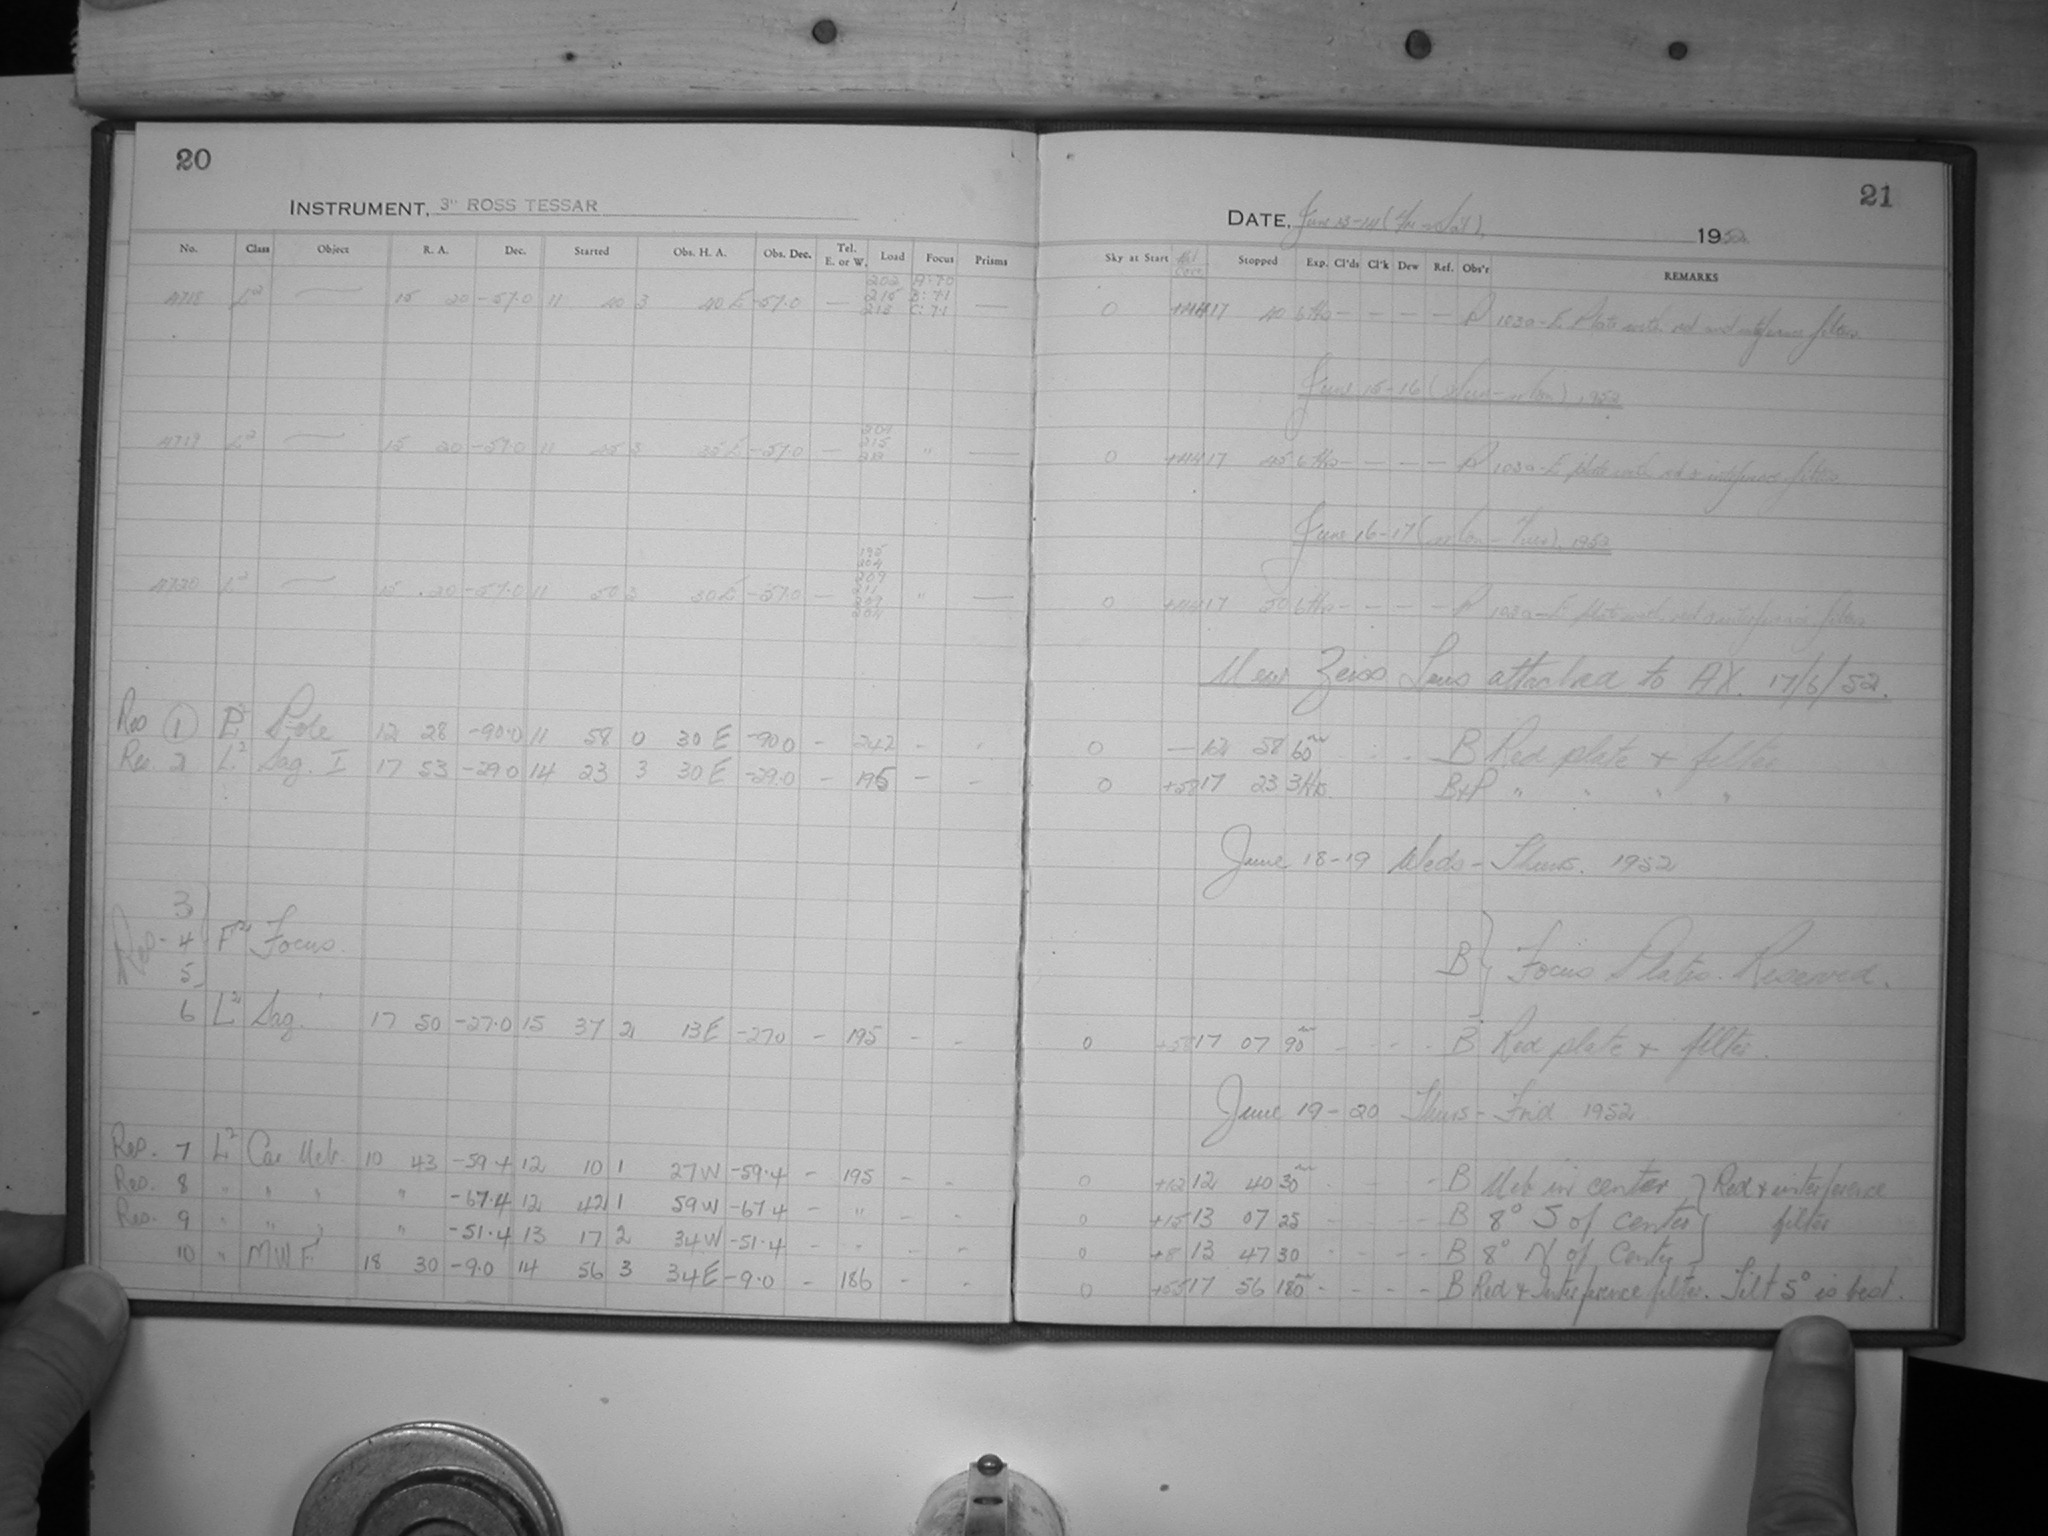 20
INSTRUMENT, 3" ROSS TESSAR
No. Class Object R. A. Dec. Started Obs. H. A. Obs. Dec. Tel. E. or W. Load Focus Prisms
202 A: 7.0
4718 L2 — 15 20 -57.0 11 40 3 40 E -57.0 — 215 B: 7.1 —
213 C: 7.1
4719 L2 — 15 20 -57.0 11 45 3 35 E -57.0 — 215 " —
4720 L2 — 15 20 -57.0 11 50 3 30 E -57.0 — " —
Res ① Pole 12 28 -90.0 11 58 0 30 E -90.0 - 242 - -
Res 2 L2 Sag. I 17 53 -29.0 14 23 3 30 E -29.0 - 195 - -
3
Res - 4 F2 Focus.
5
6 L2 Sag. 17 50 -27.0 15 37 2 13 E -27.0 - 195 - -
Res. 7 L2 Car Neb. 10 43 -59.4 12 10 1 27 W -59.4 - 195 - -
Res. 8 " " " " -67.4 12 42 1 59 W -67.4 - " - -
Res. 9 " " " " -51.4 13 17 2 34 W -51.4 - " - -
10 " MWF 18 30 -9.0 14 56 3 34 E -9.0 - 186 - -
21
DATE, June 13-14 1952
Sky at Start Stopped Exp. Cl'ds Cl'k Dew Ref. Obs'r REMARKS
0 +44 17 40 6 hrs - - - - P 103a-E Plate with red and interference filters
June 15-16 (Sun-Mon) 1952
0 +44 17 45 6 hrs - - - - P 103a-E plate with red & interference filters
June 16-17 (Mon-Tues), 1952
0 +44 17 50 6 hrs - - - - P 103a-E plate with red & interference filters
New Zeiss Lens attached to AX. 17/6/52.
0 — 12 58 60m B Red plate & filter
0 17 23 3 Hrs. B+P " " " "
June 18-19 Weds-Thurs. 1952
B } Focus Plates. Reserved.
0 17 07 90m - - - - B Red plate & filter.
June 19-20 Thurs-Frid 1952
0 +12 12 40 30m - - B Neb in center } Red & interference
0 +15 13 07 25 - - - - B 8° S of center filter
0 +8 13 47 30 - - - - B 8° N of Center
0 +55 17 56 180m - - - - B Red & Interference filter. Tilt 5° is best.